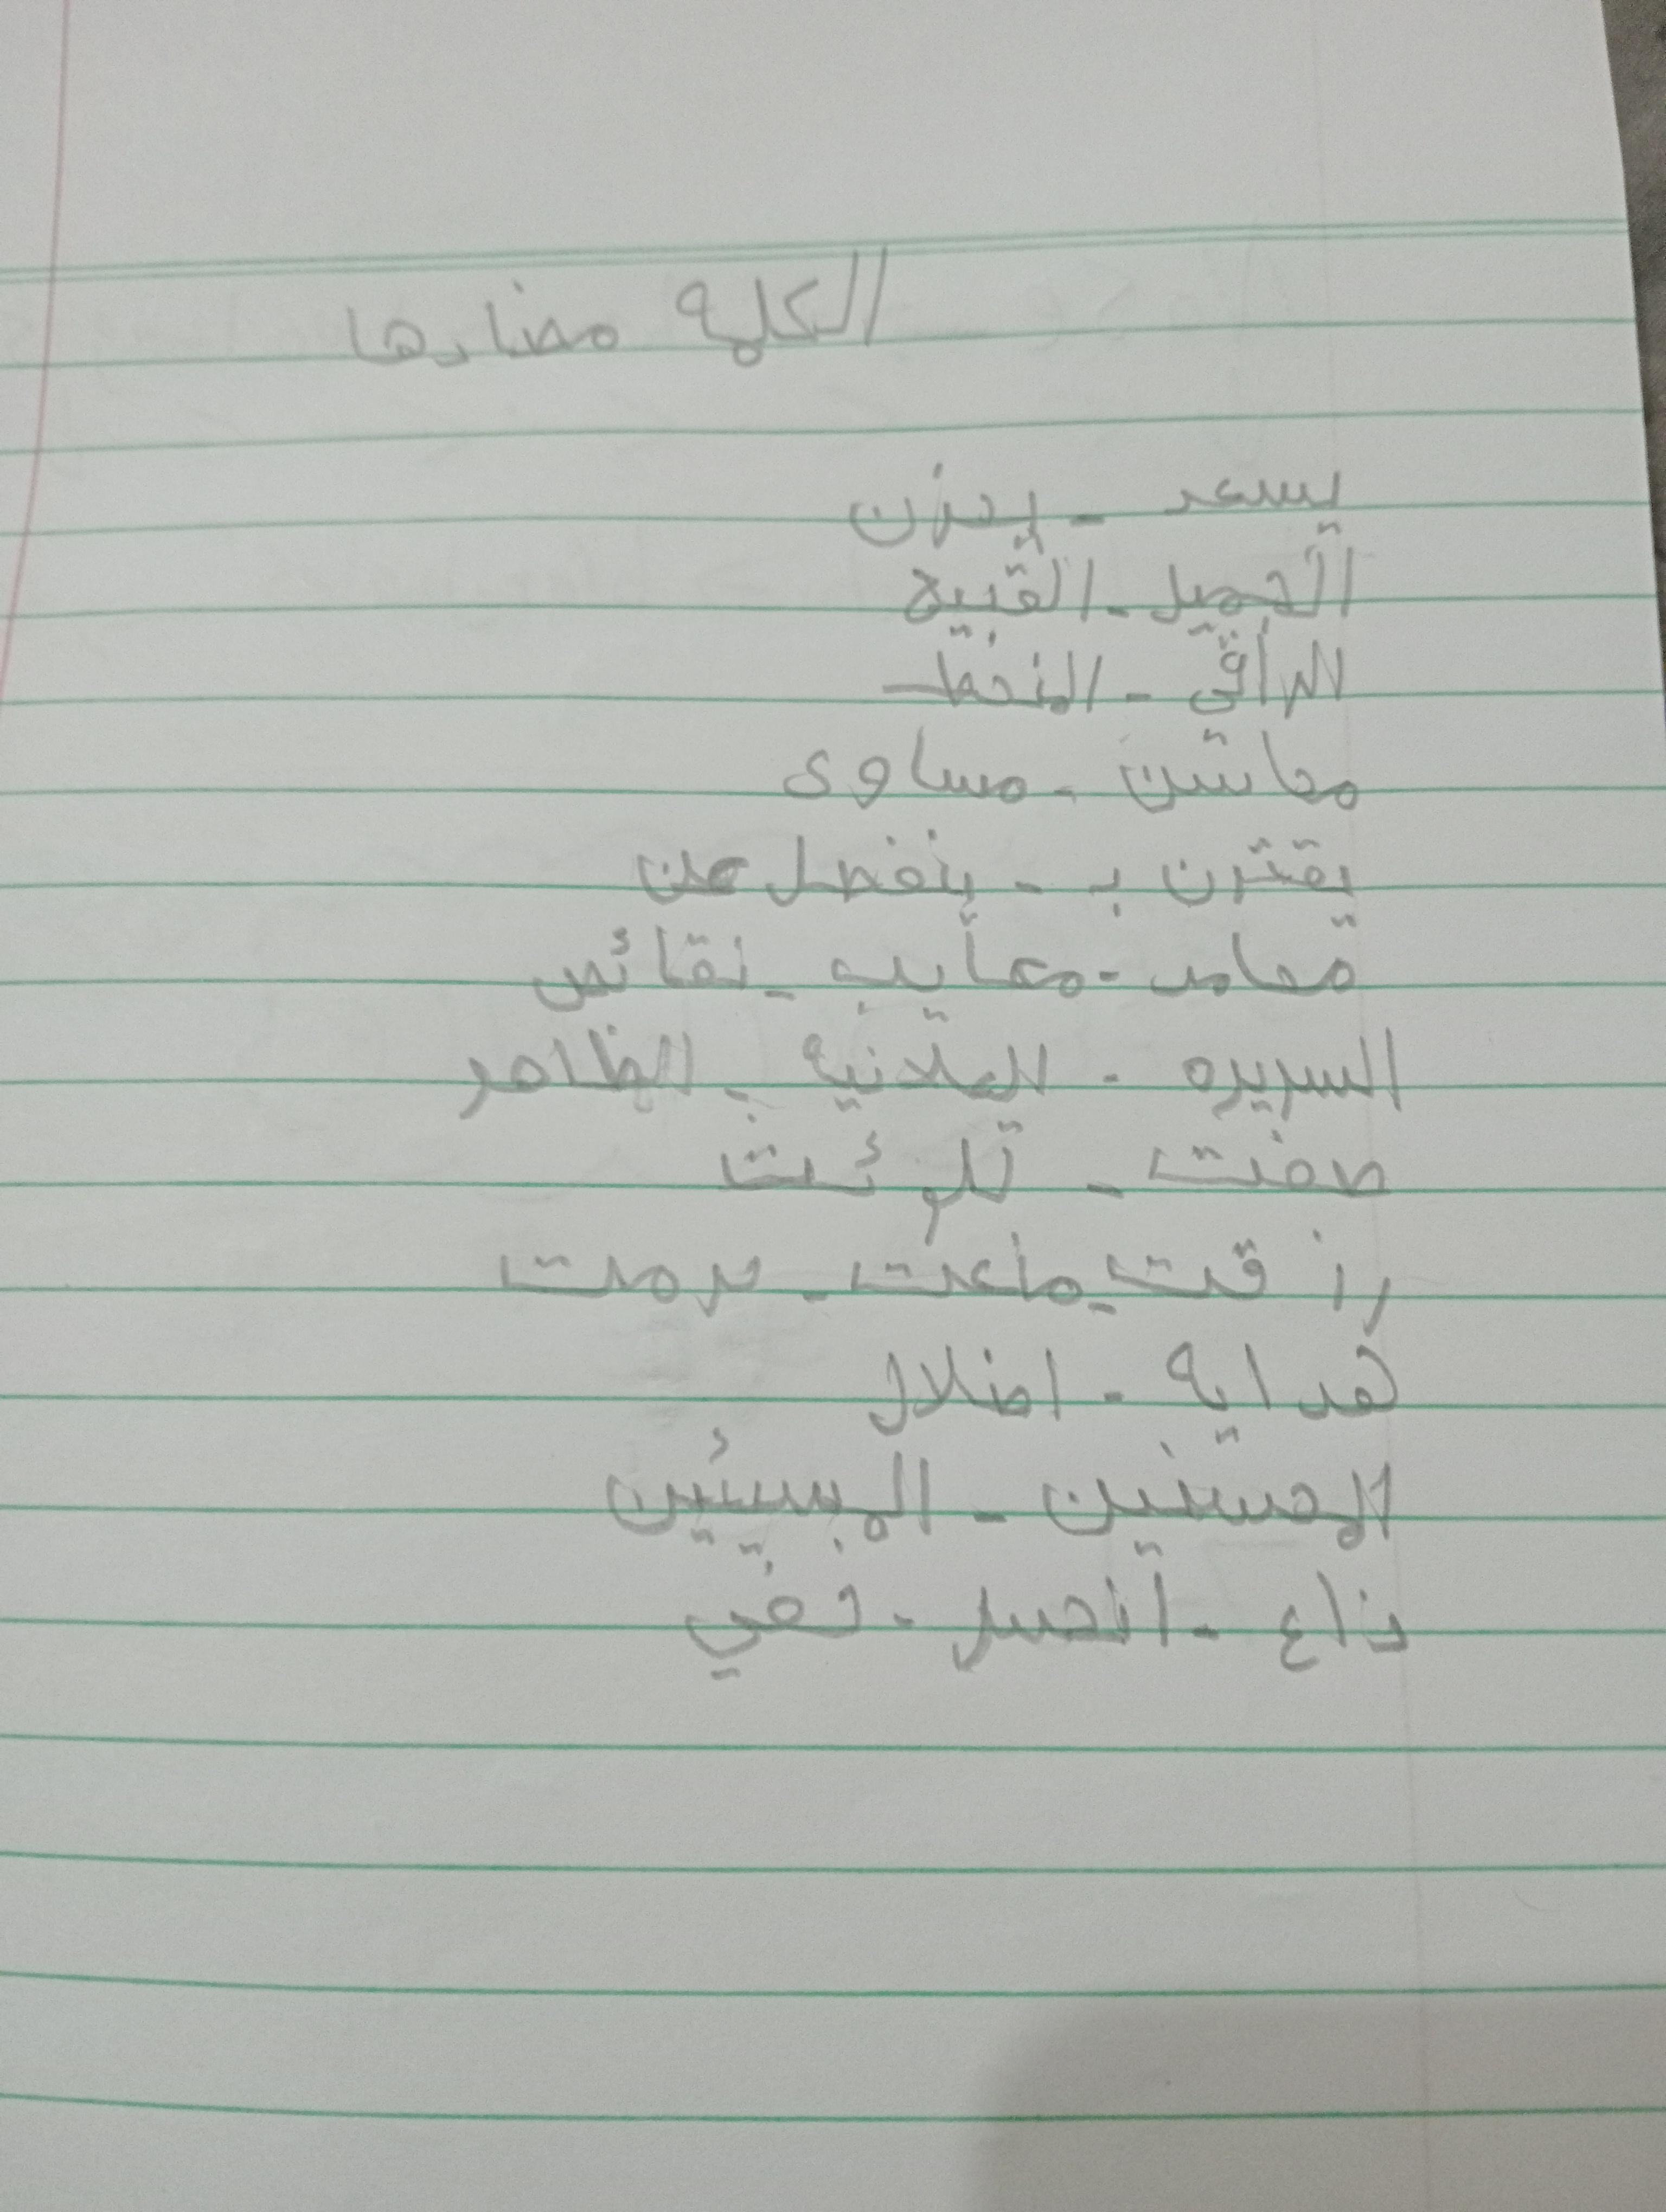 الكلمة مضادها
يسعد - يحزن
الجميل - القبيح
الراقي - المنحط
محاسن - مساوئ
يقترن ب - ينفصل عن
محامد - معايب - نقائص
السريره - العلانية - الظاهر
صفت - تلوثت
راقت - ماعت - حرمت
هداية - اضلال
المحسنين - المسيئين
ذاع - انحسر - خفي